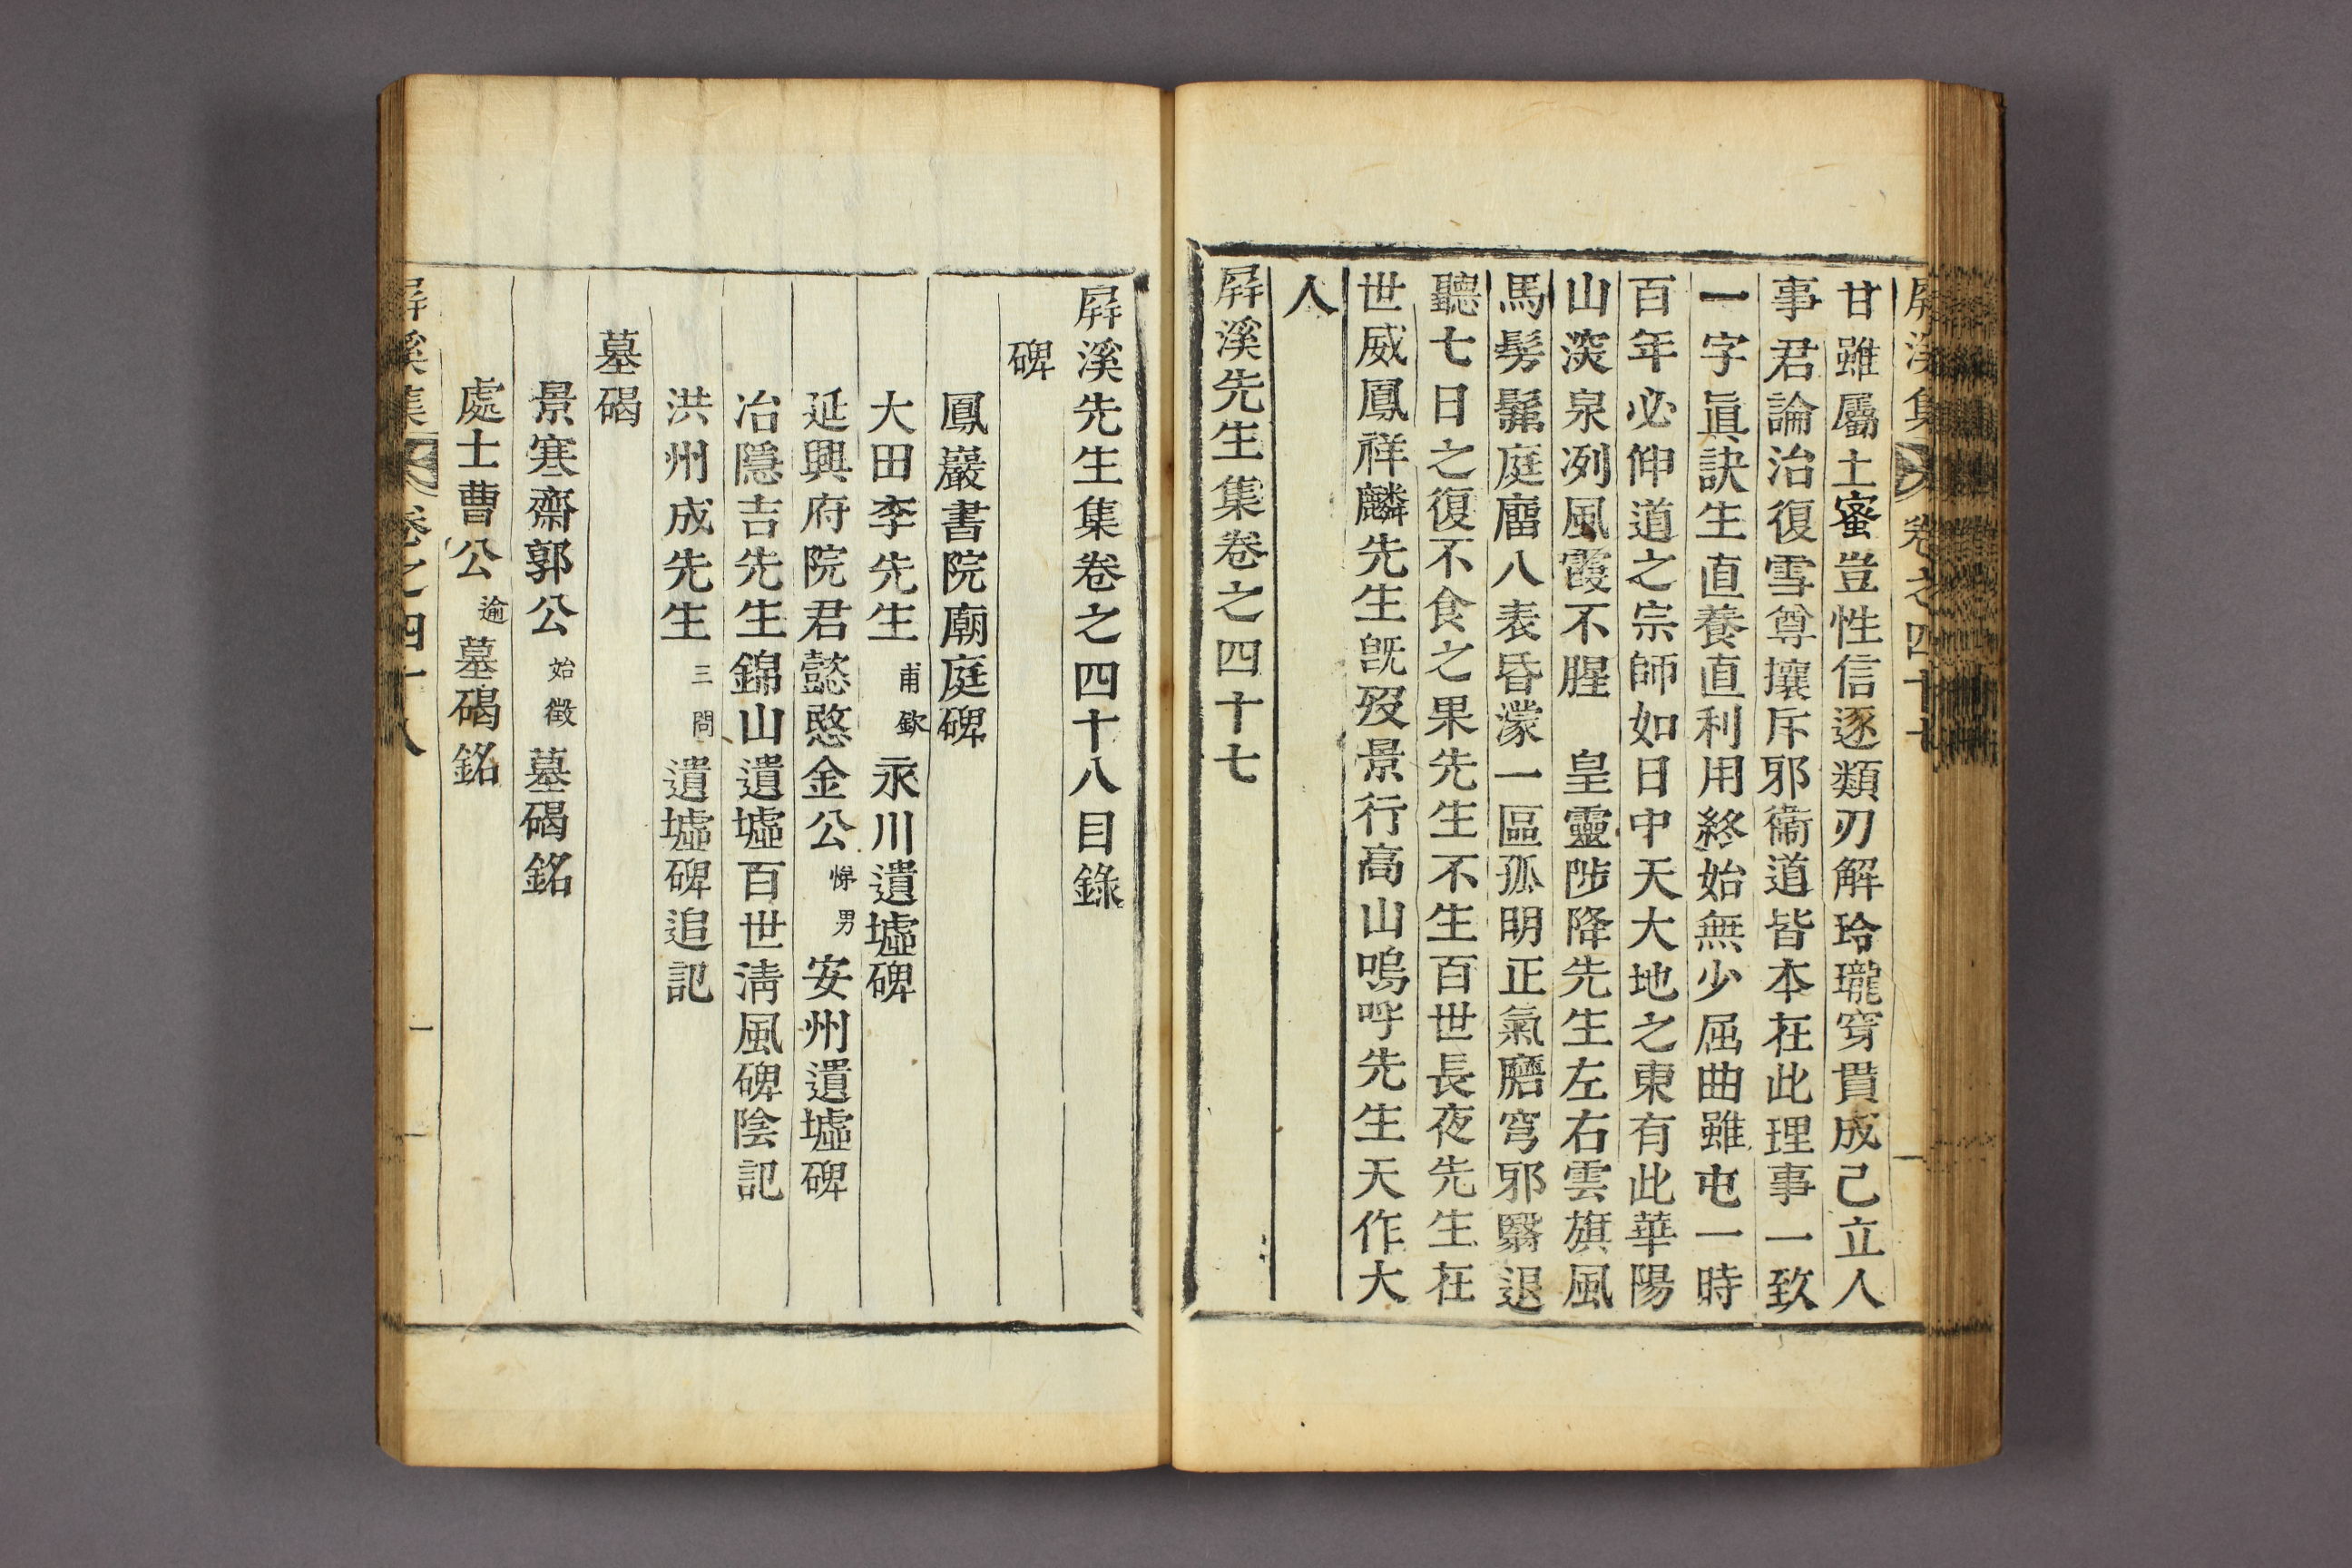 屛溪集 卷之四十七
甘雖屬土蜜豈性信逐類刃解玲瓏穿貫成己立人
事君論治復雪尊攘斥邪衞道皆本在此理事一致
一字眞訣生直養直利用終始無少屈曲雖屯一時
百年必伸道之宗師如日中天大地之東有此華陽
山深泉冽風霞不腥 皇靈陟降先生左右雲旗風
馬髣髴庭霤八表昏濛一區孤明正氣磨穹邪翳退
聽七日之復不食之果先生不生百世長夜先生在
世威鳳祥麟先生旣歿景行高山嗚呼先生天作大
人
屛溪先生集卷之四十七
屛溪先生集卷之四十八目錄
碑
鳳巖書院廟庭碑
大田李先生甫欽永川遺墟碑
延興府院君懿愍金公悌男安州遺墟碑
冶隱吉先生錦山遺墟百世淸風碑陰記
洪州成先生三問遺墟碑追記
墓碣
景寒齋郭公始徵墓碣銘
處士曹公逾墓碣銘
屛溪集 卷之四十八 一